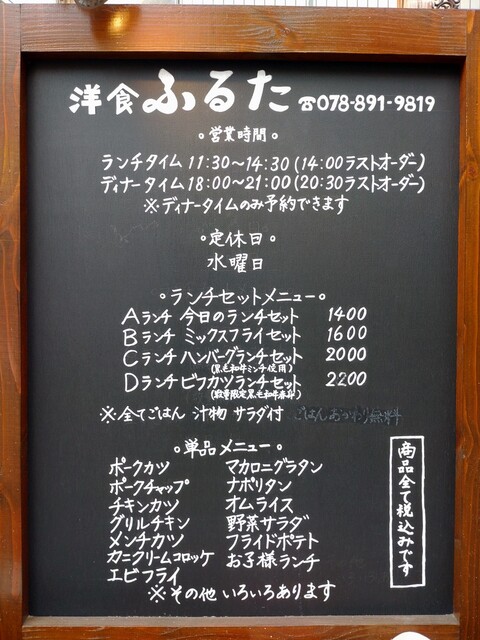 洋食ふるた ☎078-891-9819
。営業時間。
ランチタイム 11:30〜14:30 (14:00ラストオーダー)
ディナータイム 18:00〜21:00 (20:30ラストオーダー)
※ディナータイムのみ予約できます
。定休日。
水曜日
。ランチセットメニュー。
Aランチ 今日のランチセット 1400
Bランチ ミックスフライセット 1600
Cランチ ハンバーグランチセット 2000
(黒毛和牛ミンチ使用)
Dランチ ビフカツランチセット 2200
(数量限定黒毛和牛使用)
※全てごはん 汁物 サラダ付 ごはんおかわり無料
。単品メニュー。
ポークカツ
ポークチャップ
チキンカツ
グリルチキン
メンチカツ
カニクリームコロッケ
エビフライ
マカロニグラタン
ナポリタン
オムライス
野菜サラダ
フライドポテト
お子様ランチ
※その他 いろいろあります
商品全て税込みです